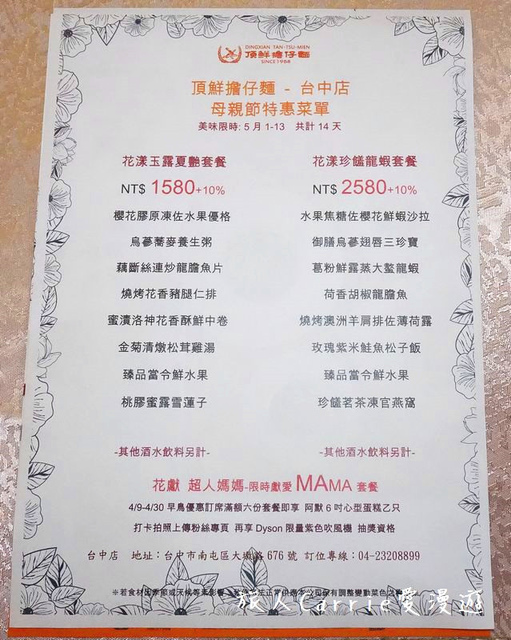 DINGXIAN TAN-TSU-MIEN
頂鮮擔仔麵
SINCE 1984
頂鮮擔仔麵 - 台中店
母親節特惠菜單
美味限時: 5月1-13 共計14天
花漾玉露夏艷套餐
NT$ 1580+10%
櫻花膠原凍佐水果優格
烏蔘蕎麥養生粥
藕斷絲連炒龍膽魚片
燒烤花香豬腿仁排
蜜漬洛神花香酥鮮中卷
金菊清燉松茸雞湯
臻品當令鮮水果
桃膠蜜露雪蓮子
-其他酒水飲料另計-
花漾珍饈龍蝦套餐
NT$ 2580+10%
水果焦糖佐櫻花鮮蝦沙拉
御膳烏蔘翅唇三珍寶
葛粉鮮露蒸大鰲龍蝦
荷香胡椒龍膽魚
燒烤澳洲羊肩排佐薄荷露
玫瑰紫米鮭魚松子飯
臻品當令鮮水果
珍饈茗茶凍官燕窩
-其他酒水飲料另計-
花獻 超人媽媽-限時獻愛 MAMA 套餐
4/9-4/30 早鳥優惠訂席滿額六份套餐即享 阿默6吋心型蛋糕乙只
打卡拍照上傳粉絲專頁 再享 Dyson 限量紫色吹風機 抽獎資格
台中店 地址:台中市南屯區大墩路676號 訂位專線:04-23208899
※若食材因季節或天候等素影響
旅人Carrie愛漫遊